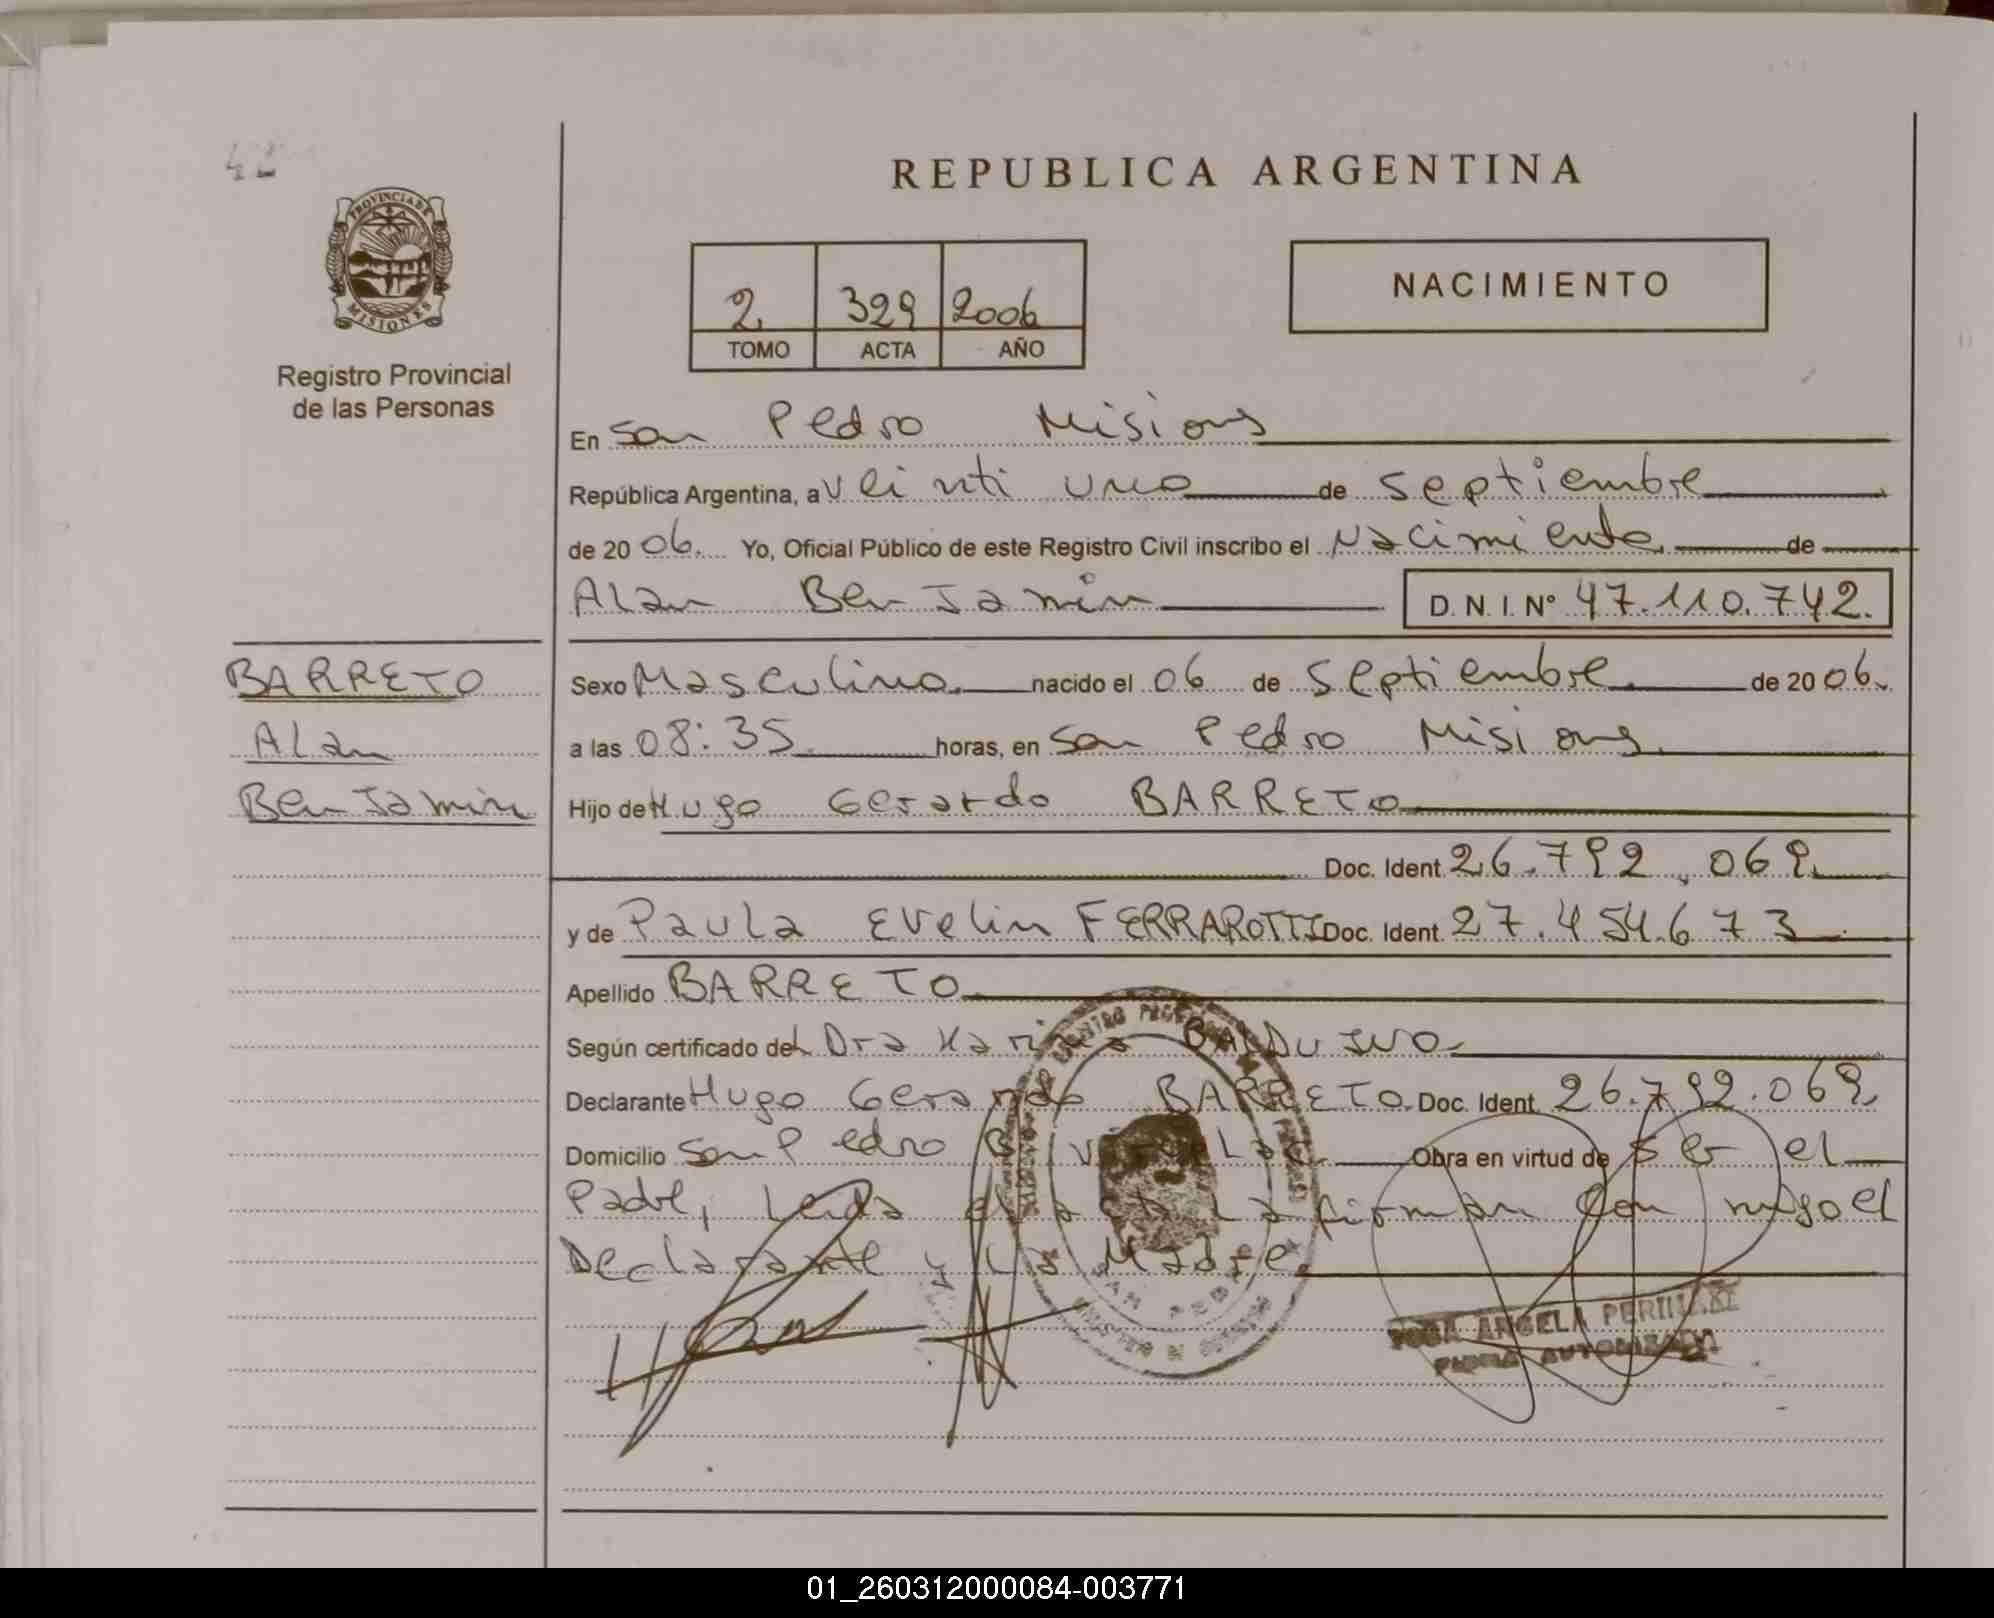 42
REPUBLICA ARGENTINA
PROVINCIA DE
MISIONES
Registro Provincial
de las Personas
2 329 2006
TOMO ACTA AÑO
NACIMIENTO
En San Pedro Misiones
República Argentina, a veinti uno de septiembre
de 20 06. Yo, Oficial Público de este Registro Civil inscribo el Nacimiento de
Alan BenJamin D.N.I.Nº 47.110.742.
BARRETO
Alan
BenJamin
Sexo Masculino. nacido el 06 de septiembre de 20 06.
a las 08:35 horas, en San Pedro Misiones
Hijo de Hugo Gerardo BARRETO
Doc. Ident. 26.792.069.
y de Paula Evelin FERRAROTTI Doc. Ident. 27.454.673
Apellido BARRETO
Según certificado del Dra BALDUINO
Declarante Hugo Gerardo BARRETO. Doc. Ident. 26.792.069.
Domicilio San Pedro Obra en virtud de ser el
Padre, Leida el acta La firman con migo el
Declarante y La Madre
SAN PEDRO
ANGELA
AUTORIZADA
01_260312000084-003771